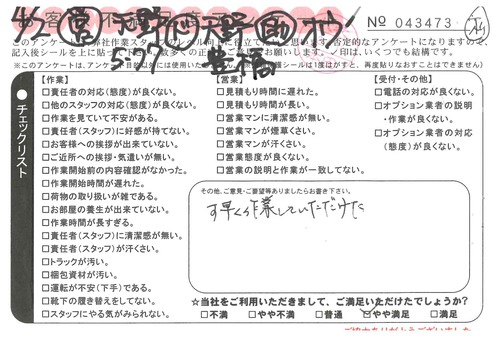 No 043473
このアンケートは
記入後シールを上に貼って下
※このアンケートは、アンケート目的以外には使用いたし
護シールは1度はがすと、再度貼りなおすことはできません)
チェックリスト
【作業】
□責任者の対応(態度)が良くない。
□他のスタッフの対応(態度)が良くない。
□作業を見ていて不安がある。
□責任者(スタッフ)に好感が持てない。
□お客様への挨拶が出来ていない。
□ご近所への挨拶・気遣いが無い。
□作業開始前の内容確認がなかった。
□作業開始時間が遅れた。
□荷物の取り扱いが雑である。
□お部屋の養生が出来ていない。
□作業時間が長すぎる。
□責任者(スタッフ)に清潔感が無い。
□責任者(スタッフ)が汗くさい。
□トラックが汚い。
□梱包資材が汚い。
□運転が不安(下手)である。
□靴下の履き替えをしてない。
□スタッフにやる気がみられない。
【営業】
□見積もり時間に遅れた。
□見積もり時間が長い。
□営業マンに清潔感が無い。
□営業マンが煙草くさい。
□営業マンが汗くさい。
□営業態度が良くない。
□営業の説明と作業が一致してない。
【受付・その他】
□電話の対応が良くない。
□オプション業者の説明
・作業が良くない。
□オプション業者の対応
(態度)が良くない。
その他、ご意見・ご要望等ありましたらお書き下さい。
す早く作業していただけた
☆当社をご利用いただきまして、ご満足いただけたでしょうか?
□不満 □やや不満 □普通 □やや満足 □満足
ご協力ありがとうございました